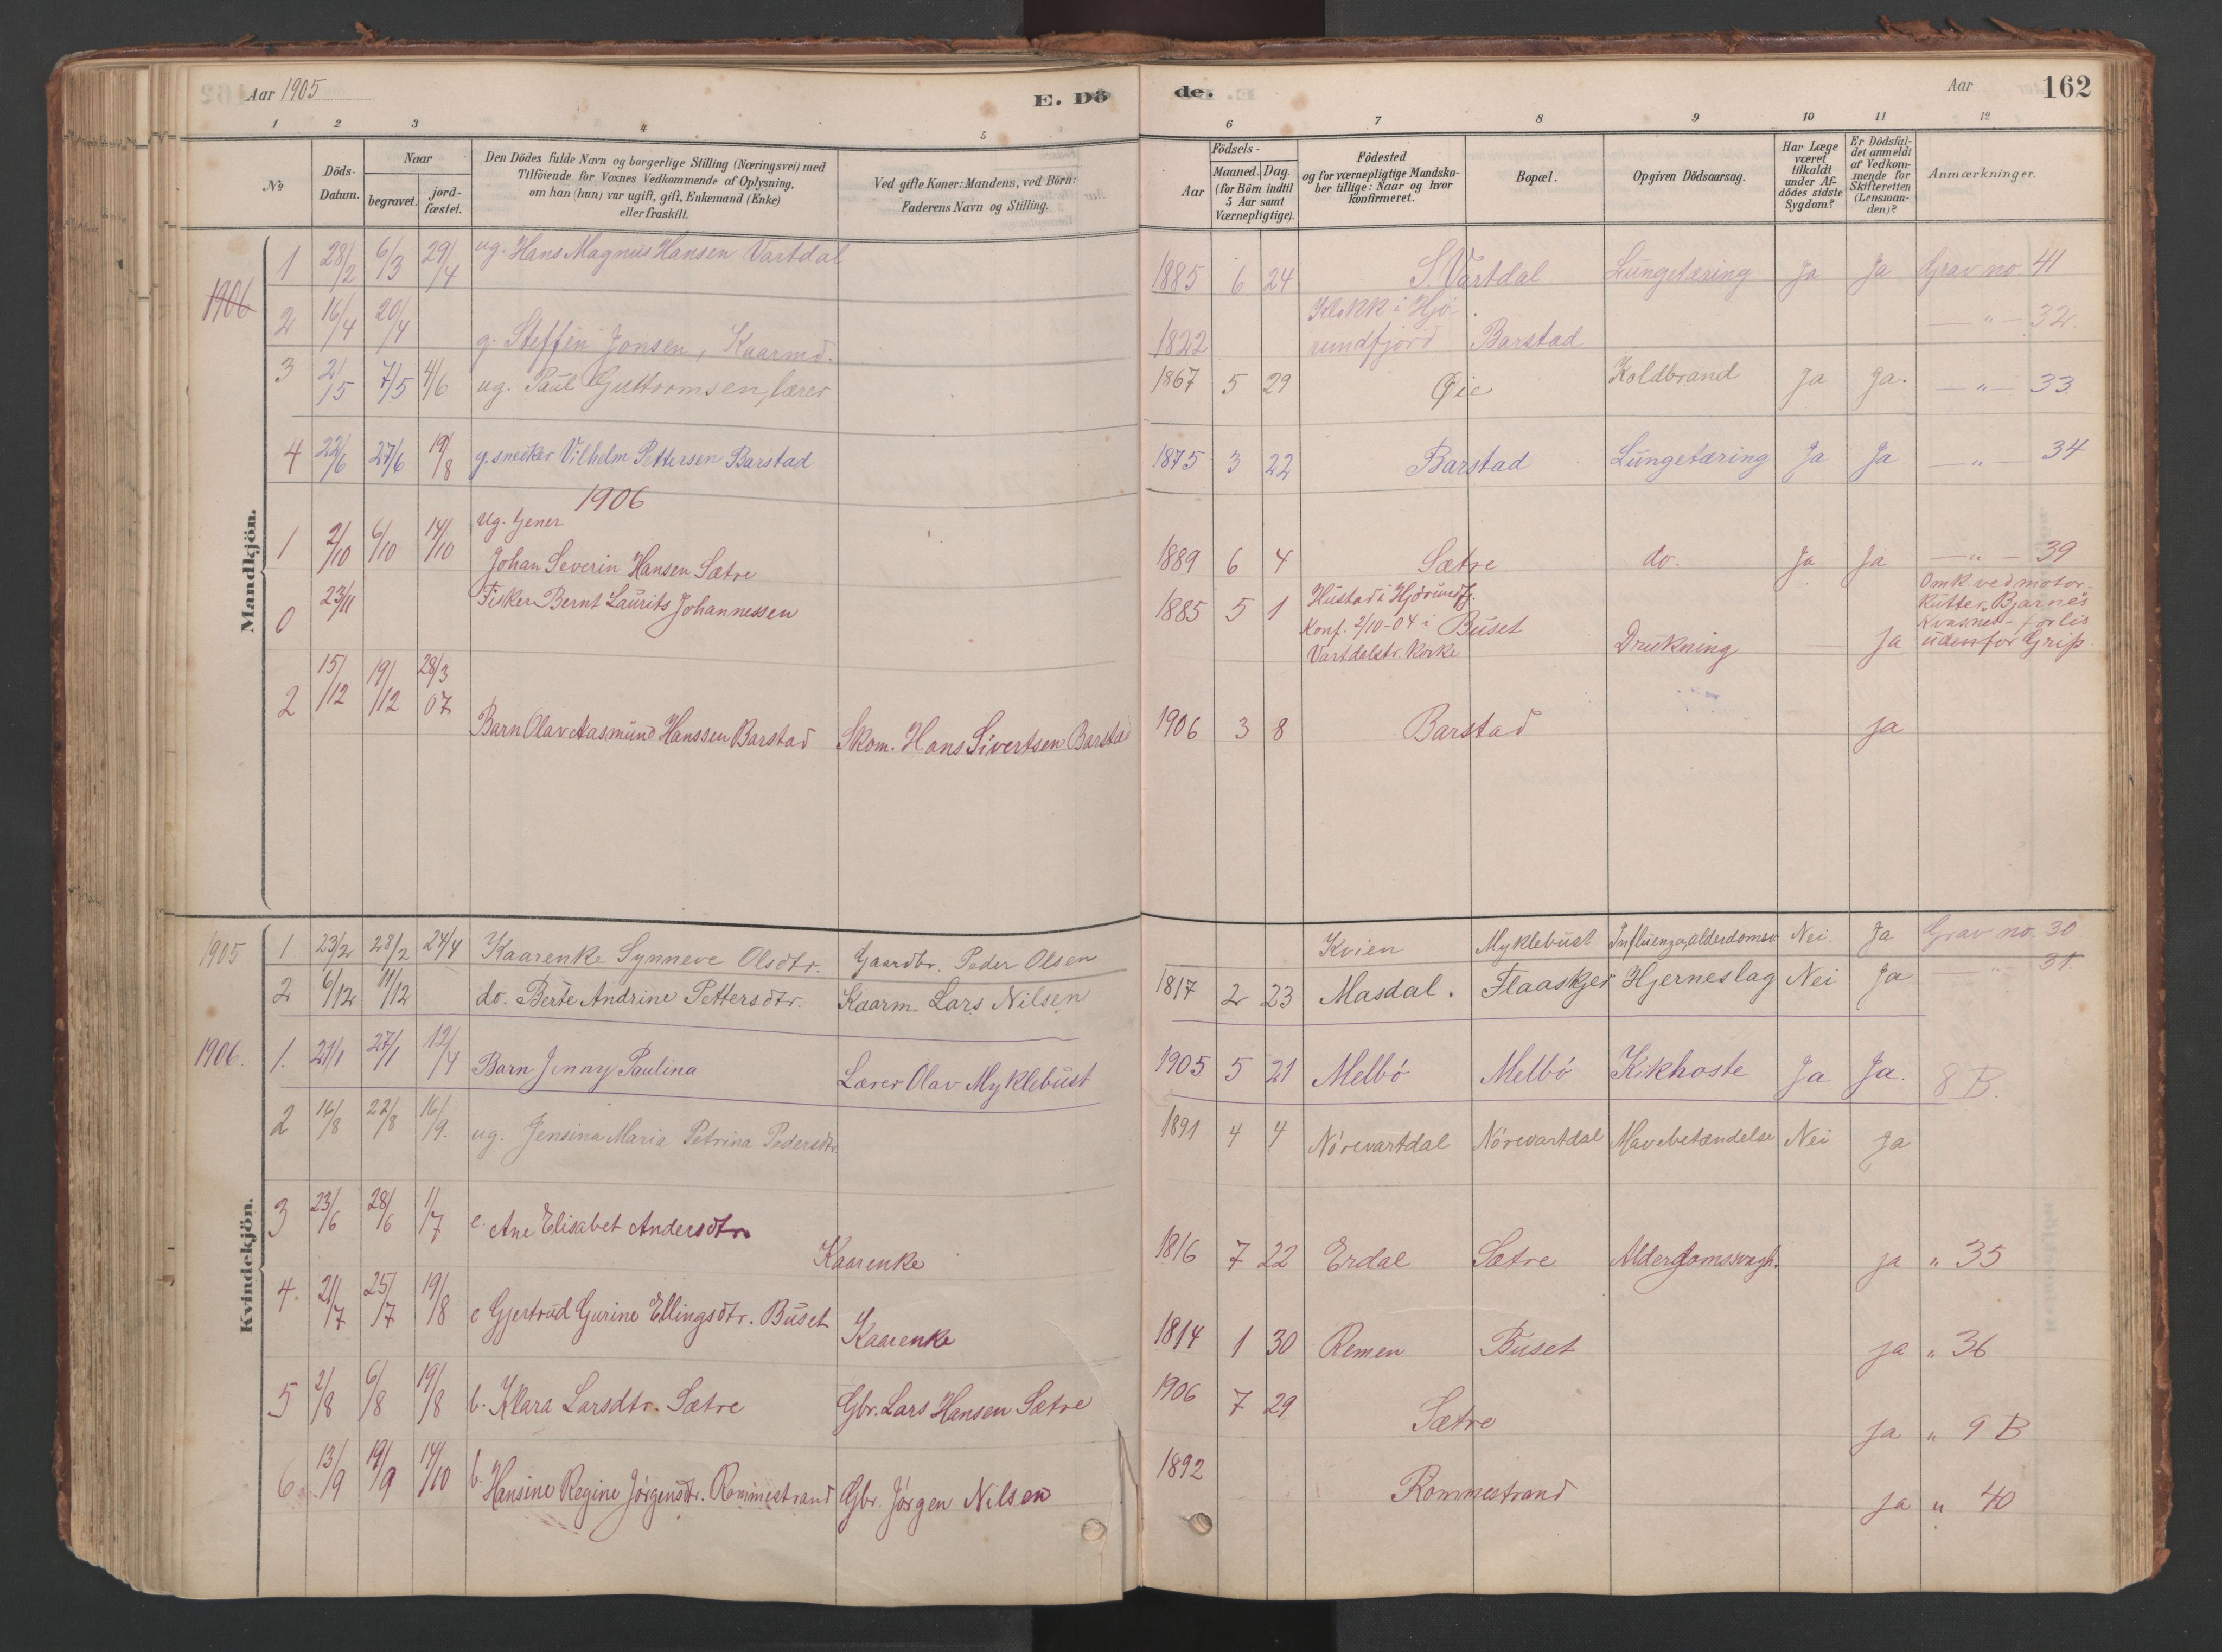 Aar 1905
E. Dö
de.
Aar
162
1 2 3 4 5 6 7 8 9 10 11 12
№
Döds-Datum.
Naar
begravet.
jord-fæstet.
Den Dödes fulde Navn og borgerlige Stilling (Næringsvei) med
Tilföiende for Voxnes Vedkommende af Oplysning,
om han (hun) var ugift, gift, Enkemand (Enke)
eller fraskilt.
Ved gifte Koner: Mandens, ved Börn:
Faderens Navn og Stilling.
Födsels-
Aar
Maaned. Dag.
(for Börn indtil
5 Aar samt
Værnepligtige).
Födested
og for værnepligtige Mandska-
ber tillige: Naar og hvor
konfirmeret.
Bopæl.
Opgiven Dödsaarsag.
Har Læge
været
tilkaldt
under Af-
dödes sidste
Sygdom?
Er Dödsfal-
det anmeldt
af Vedkom-
mende for
Skifteretten
(Lensman-
den)?
Anmærkninger.
Mandkjön.
1906
1 28/2 6/3 29/4 ug. Hans Magnus Hansen Vartdal 1885 6 24 S. Vartdal Lungetæring Ja Ja Grav no 41
2 16/4 20/4 g. Steffen Jonsen, Kaarmd. 1822 Klokk i Hjö-
rundfjord Barstad — " — 32.
3 2/5 7/5 4/6 ug. Paul Guttormsen, lærer 1867 5 29 Øie Koldbrand Ja Ja. — " — 33
4 22/6 27/6 19/8 g. sneker Vilhelm Pettersen Barstad 1875 3 22 Barstad Lungetæring Ja Ja — " — 34
1906
1 2/10 6/10 14/10 Ug. tjener
Johan Severin Hansen Sætre 1889 6 4 Sætre do. Ja Ja — " — 39
0 23/11 Fisker Bernt Laurits Johannessen 1885 5 1 Hustad i Hjörundfj.
Konf. 2/10-04 i Buset
Vartdalstr. kirke Drukning Ja Omk. ved motor-
kutter "Bjarne's
Kvasnes- forlis
udenfor Grip.
2 15/12 19/12 28/3 07 Barn Olav Aasmund Hanssen Barstad Skom. Hans Sivertsen Barstad 1906 3 8 Barstad Ja
Kvindekjön.
1905 1 23/2 28/2 24/4 Kaarenke Synneve Olsdtr. Gaardbr. Peder Olsen Kvien Myklebust Influenza, alderdomsv. Nei. Ja Grav no. 30
2 6/12 11/12 do. Berte Andrine Pettersdtr. Kaarm. Lars Nilsen 1817 2 23 Masdal. Flaaskjer Hjerneslag Nei Ja — " — 31.
1906. 1. 21/1 27/1 12/4 Barn Jenny Paulina Lærer Olav Myklebust 1905 5 21 Melbö Melbö Kikhoste Ja Ja. 8 B.
2 16/8 22/8 16/9. ug. Jensina Maria Petrina Pedersdtr 1891 4 4 Nörevartdal Nörevartdal Mavebetændelse Nei Ja
3 23/6 28/6 11/7 e. Ane Elisabet Andersdtr. Kaarenke 1816 7 22 Erdal Sætre Alderdomssvagh. ja " 35
4. 21/7 25/7 19/8 e Gjertrud Gurine Ellingsdtr. Buset Kaarenke 1814 1 30 Remen Buset ja " 36
5 2/8 6/8 19/8 b. Klara Larsdtr. Sætre Gbr. Lars Hansen Sætre 1906 7 29 Sætre Ja " 9 B
6 13/9 19/9 14/10 b. Hansine Regine Jörgensdtr. Rommestrand Gbr. Jörgen Nilsen 1892 Rommestrand ja " 40